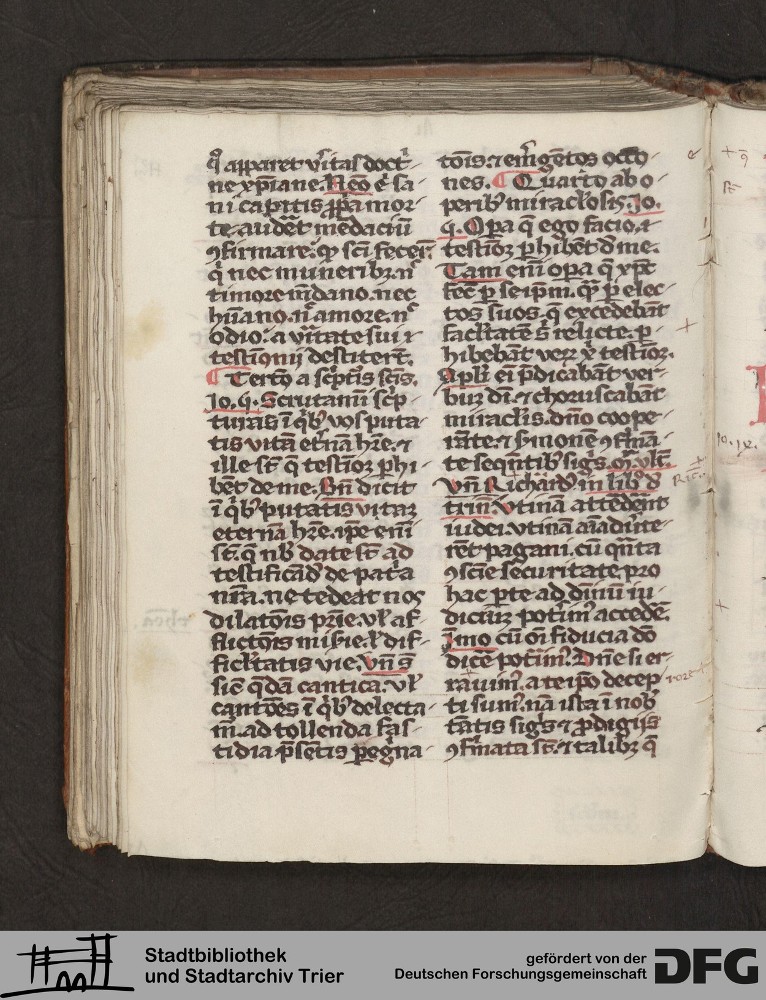 q̉ apparet v̾itas doct-
ne xp̄iane. Nco ē sa-
ni capitis pp̄a mor-
te audēt mēdaciū
ꝯfirmare. qꝫ sci fecer̄.
q̉ nec munerib; n̄
timore m̄dano. nec
hūano. n̄ amore. n̄
odio. a v̾itate sui ⁊
testiōnij destiterūt.
¶ Tertō a sc̾ptis scīs.
Io. q̉. Scrutaminī sc̾p-
turas ī qb̾ vos puta-
tis vitā et̾nā hr̄e. ⁊
ille sr̄t q̄ testiōꝫ phi-
bēt de me. Bn̄ dicit
ī qb̾ putatis vitaꝫ
eternā hr̄e. ip̄e enī
sr̄t. q̄ nb̾ date sr̄t ad
testificād̾ de pat̾a
nr̄a. ne tedeat nos
dilatōis pr̄ie. vl̾ af-
flictōis mis̾ie. l̾ dif-
ficl̾tatis vie. vn̄ s̄
sic̄ q̄dā cantica. vl̾
cantōes ī qb̾ delecta-
m̄. ad tollenda fas-
tidia p̄sētis peg̾na-
tōis. ⁊ em̾gētos octō-
nes. ¶ Quarto ab o-
perib̾ miracl̾osis. Jo.
q̉. Opa q̄ ego facio. ⁊
testiōꝫ phibēt d̾ me.
Tam enī opa q̄ xp̄c
fec̄ p seip̄m. qꝫ p elec-
tos suos. q̉ excedebāt
facl̾tatē s̄ relicte. p-
hibebāt veꝝ x̄ testiōꝫ.
Apl̾i ei p̄dicabāt ver-
buꝫ dī. ⁊ choruscabāt
miracl̾is. dn̄o coope-
rāte. ⁊ s̾monē ꝯfirmā-
te seqn̄tib̾ sigīs. m̾. vl̾t.
vn̄ Richard̾ in lib̾ d̾
trin̄. vtinā attēdēnt
iudei. vtinā aīaduerte-
rēt pagani. cū qn̄ta
ꝯscīe securitate pro
hac pte ad dinū iu-
diciuꝫ potim̾ accedē.
Immo cū oī fiducia dō
dicē potim̾. Dn̄e si er-
rauim̾. a teip̄o decep-
ti sum̾. nā ista ī nob̾
tātis sigīs ⁊ prodigijs
ꝯfirmata sr̄t. ⁊ talib; q̄
Stadtbibliothek
und Stadtarchiv Trier
gefördert von der
Deutschen Forschungsgemeinschaft
DFG